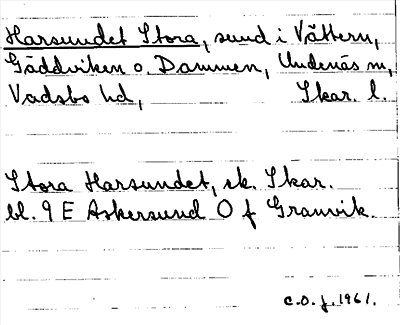 Harsundet Stora, sund i Vättern,
Gäddviken o. Dammen, Undenäs sn,
Vadsbo hd, Skar. l.
Stora Harsundet, ek. Skar.
bl. 9 E Askersund O f Granvik.
C.O.J. 1961.